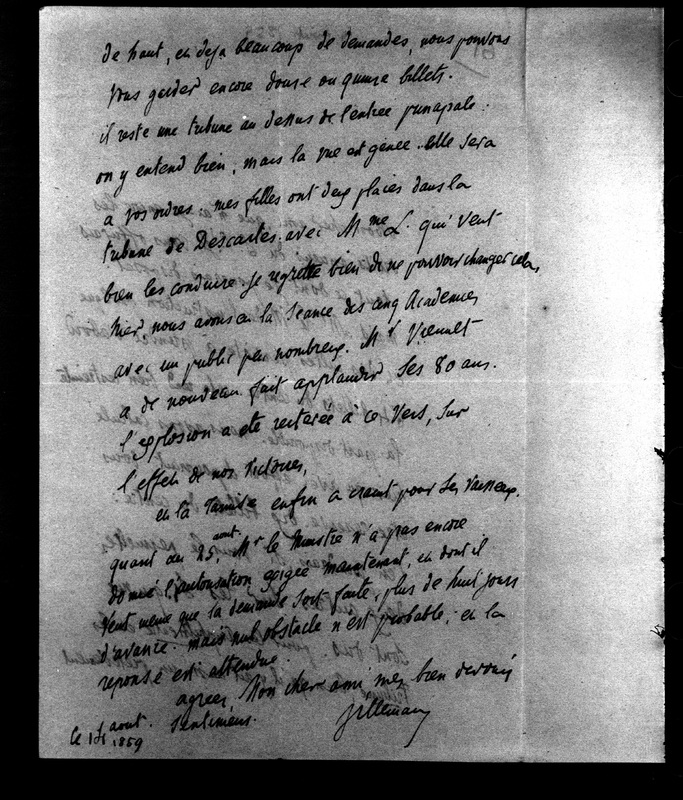 de haut, et déja beaucoup de demandes, nous pouvons
vous garder encore douze ou quinze billets.
il reste une tribune au dessus de l'entrée principale.
on y entend bien, mais la vue est gênée. elle sera
a vos ordres. mes filles ont deux places dans la
tribune de Descartes. avec Mme L. qui veut
bien les conduire. je regrette bien de ne pouvoir changer cela,
hier, nous avons eu la séance des cinq Académies
avec un public peu nombreux. Mr Viennet
a de nouveau fait applaudir ses 80 ans.
l'explosion a été à ce vers, sur
l'effet de nos victoires,
et la Tamise enfin a craint pour ses vaisseaux.
quant au 25 aout, Mr le Ministre n'a pas encore
donné l'autorisation exigée maintenant, et dont il
veut meme que la demande soit faite, plus de huit jours
d'avance. mais nul obstacle n'est probable; et la
reponse est attendue.
agreez, Mon cher ami, mes bien devoués
sentimens.
Villemain
le aout. 1859